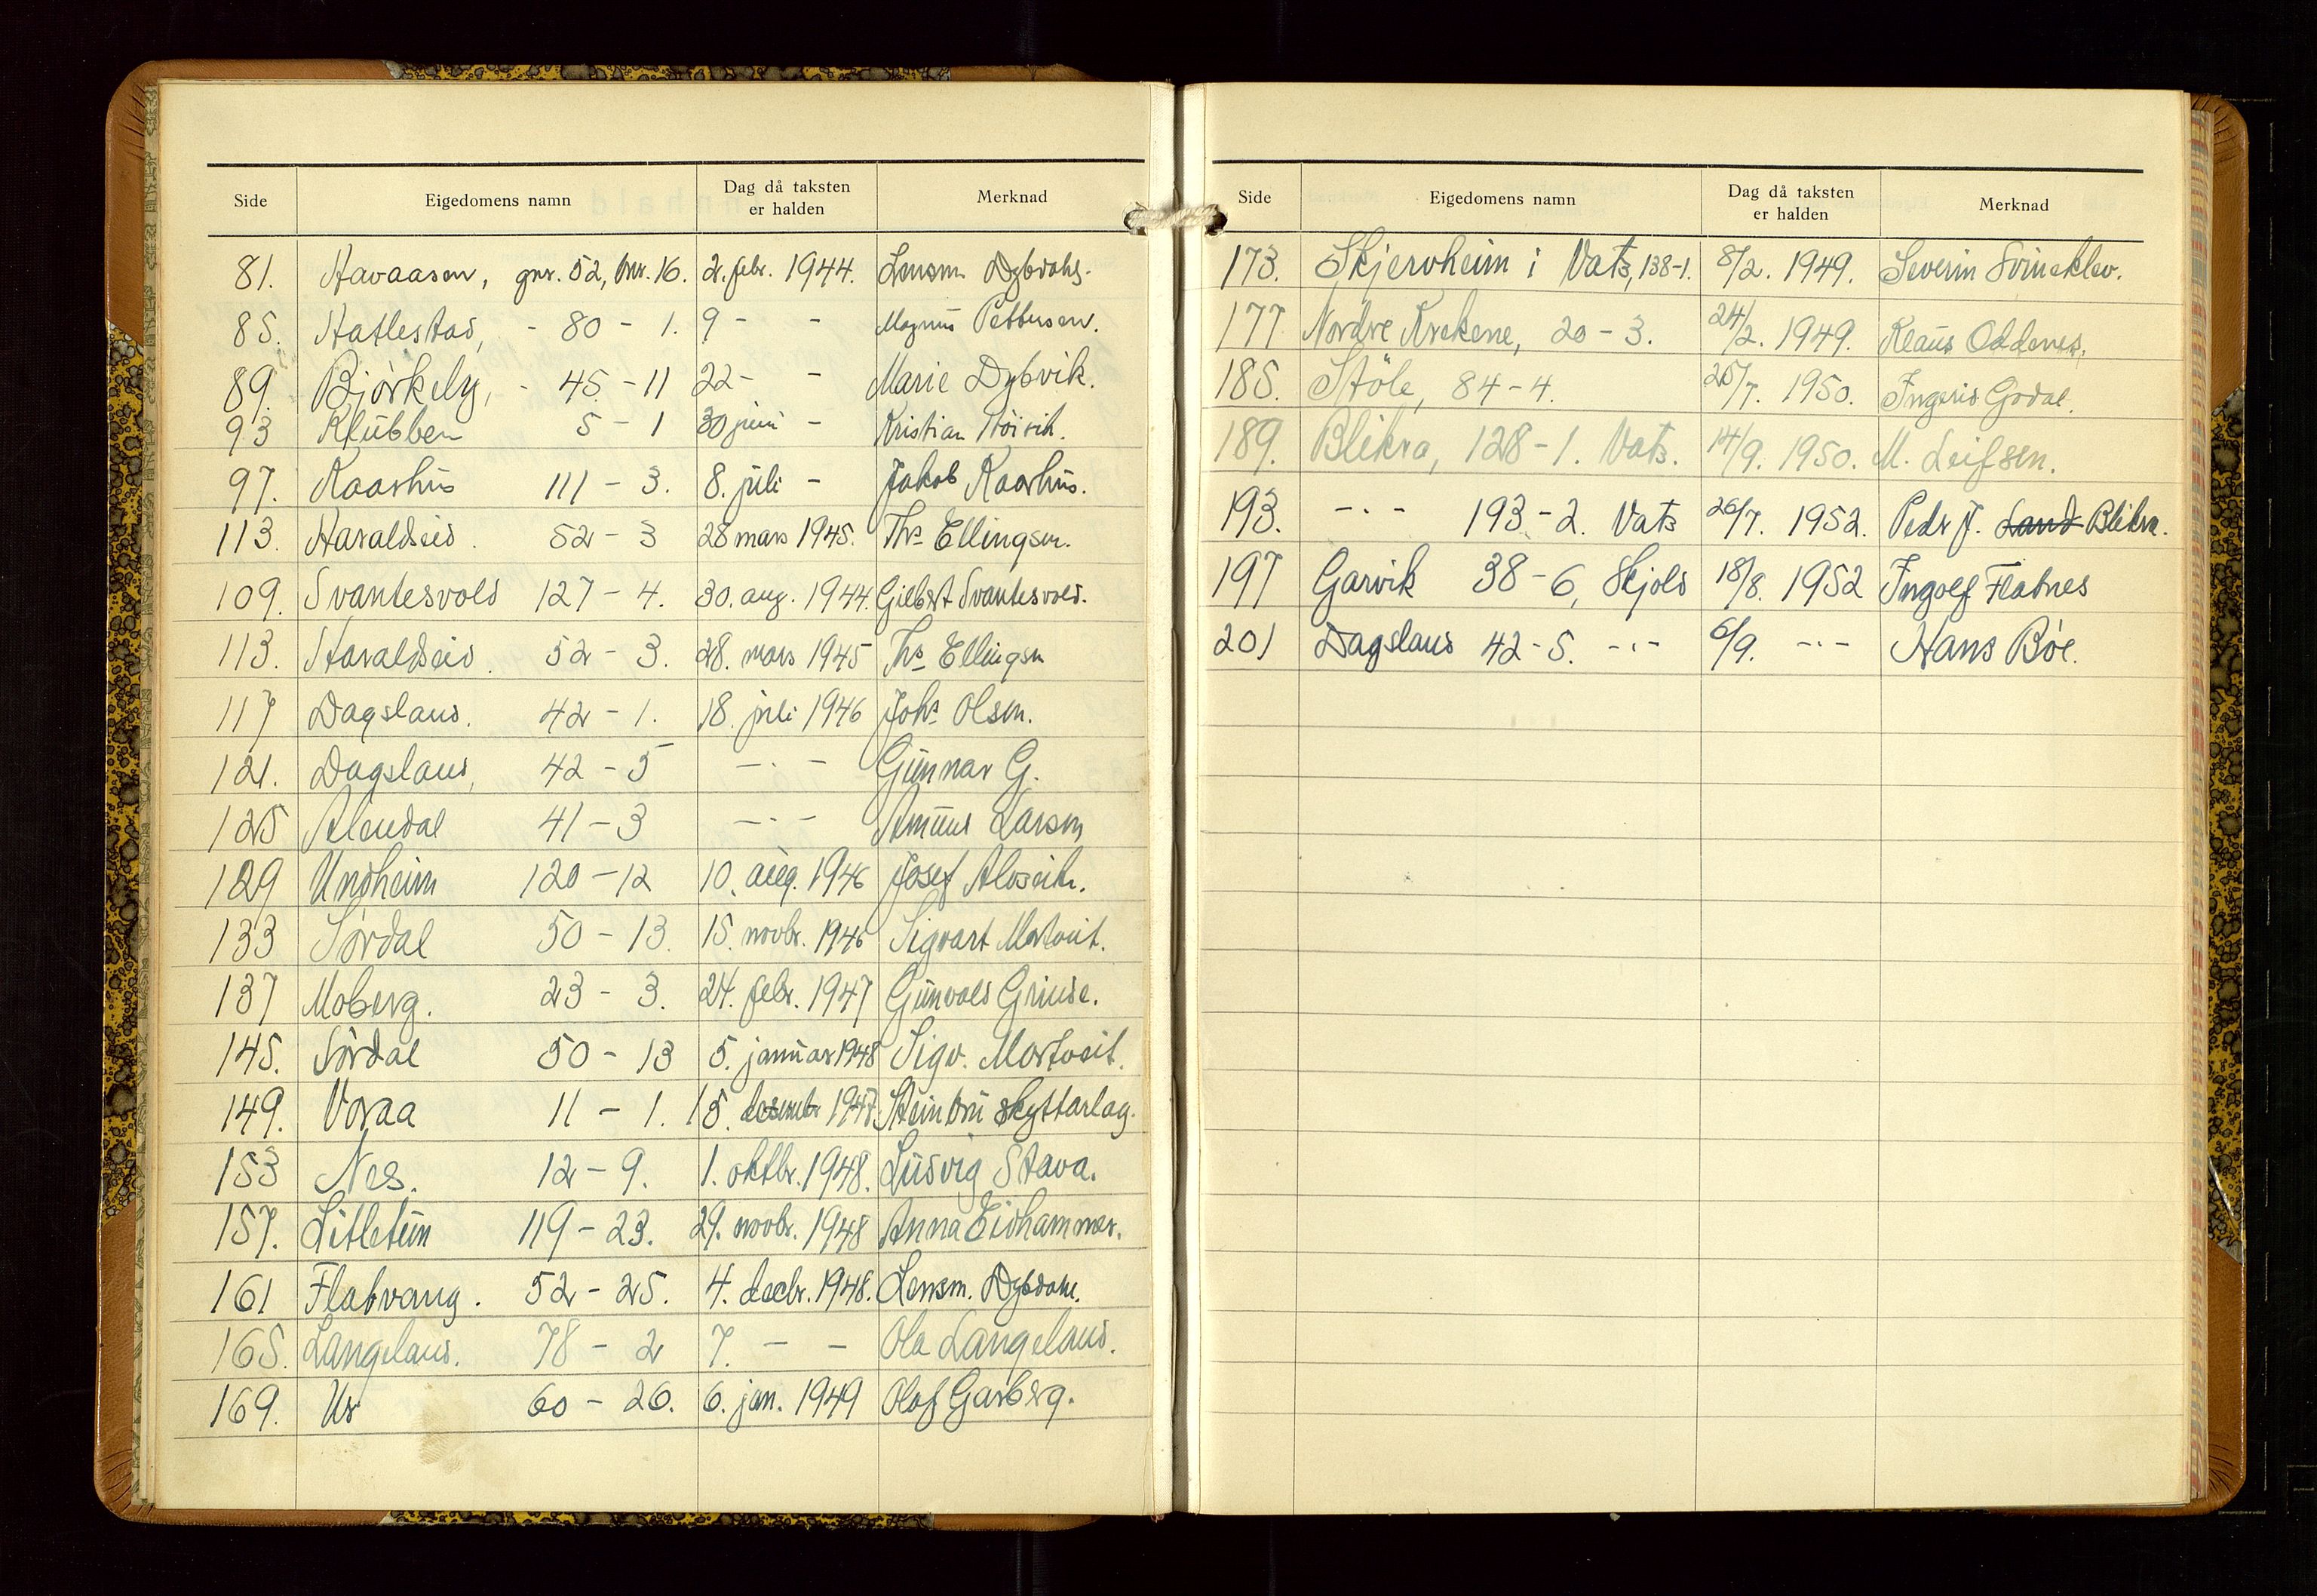 Side Eigedomens namn Dag då taksten er halden Merknad
81. Havaasen, gnr. 52, bnr. 16. 2. febr. 1944. Lensm. Dybdahl.
85. Hatlestad, - 80 - 1. 9 - - Magnus Pettersen.
89. Björkely, - 45 - 11 22 - - Marie Dybvik.
93 Klubben 5 - 1 30 juni - Kristian
97. Kaarhus 111 - 3. 8. juli - Jakob Kaarhus.
113. Haraldseid. 52 - 3 28 mars 1945. Ths Ellingsen.
109. Svantesvold 127 - 4. 30. aug. 1944. Gilbert Svantesvold.
113. Haraldseid. 52 - 3. 28. mars 1945 Ths Ellingsen
117 Dagsland. 42 - 1. 18. juli 1946 Johs Olsen.
121. Dagsland, 42 - 5 - . - Gunnar G.
125 Alendal 41 - 3 - . - Amund Larsen
129 Undheim 120 - 12 10. aug. 1946 Josef Alvseik.
133 Sørdal 50 - 13. 15. novbr. 1946 Sigvart Mortveit.
137 Moberg. 23 - 3. 24. febr. 1947 Gunvald Grinde.
145. Sördal 50 - 13 5. januar 1948 Sigv. Mortveit.
149. Voraa 11 - 1. 15. desembr 1947. Steinbru skyttarlag.
153 Nes. 12 - 9. 1. oktbr. 1948. Ludvig Stava.
157. Litletun 119 - 23. 29. novbr. 1948 Anna Eidhammer.
161 Flatvang. 52 - 25. 4. decbr. 1948. Lensm. Dybdahl.
165. Langeland. 78 - 2 7. - - Ola Langeland.
169. Ur 60 - 26. 6. jan. 1949 Olaf Garberg.
Side Eigedomens namn Dag då taksten er halden Merknad
173. Skjerveheim i Vats, 138-1. 8/2. 1949. Severin Svineklev.
177 Nordre Krekene, 20 - 3. 24/2. 1949. Klaus Oddenes.
185. Stöle, 84 - 4. 25/7. 1950. Ingerid Godal.
189. Blikra, 128 - 1. Vats. 14/9. 1950. M. Leifsen.
193. - . - 193 - 2. Vats 26/7. 1952. Peder J. Land Blikra.
197 Garvik 38 - 6, Skjold 18/8. 1952 Ingolf Flatnes
201 Dagsland 42 - 5. - . - 6/9. - . - Hans Böe.